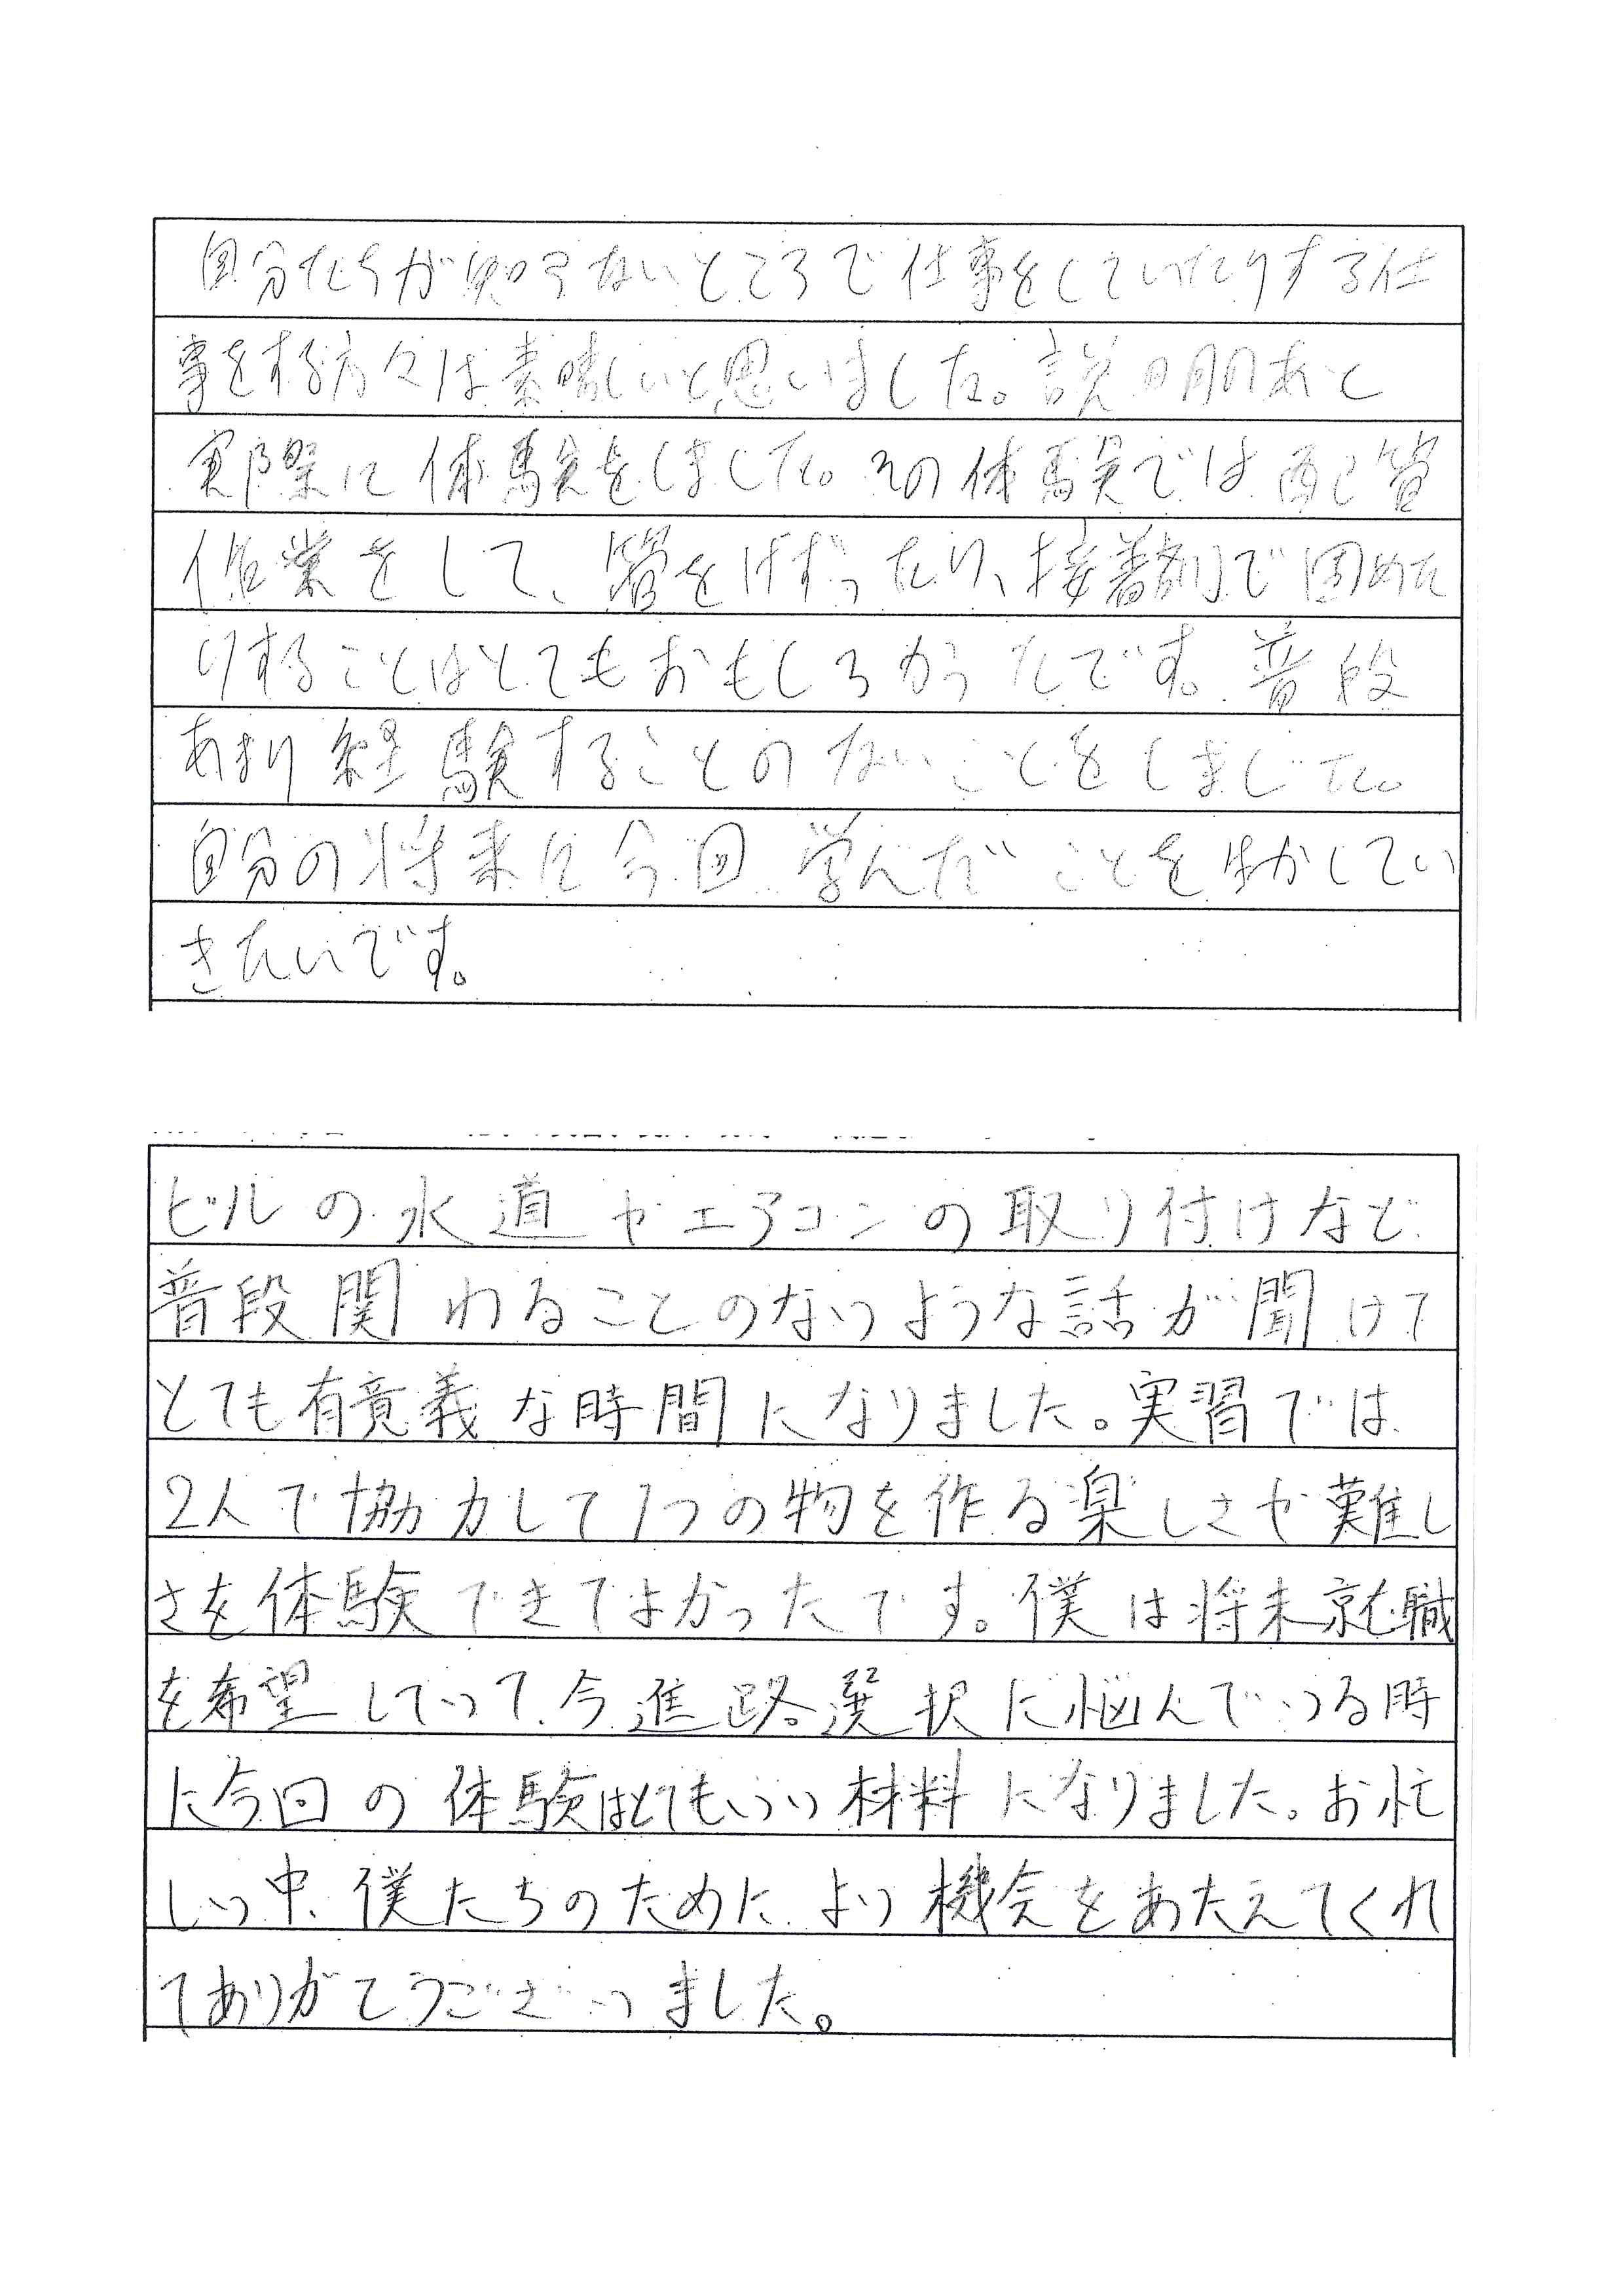 自分たちが知らないところで仕事をしていたりする仕
事をする方々は素晴しいと思いました。説明のあと
実際に体験をしました。その体験では配管
作業をして、管をけずったり、接着剤で固めた
りすることはとてもおもしろかったです。普段
あまり経験することのないことをしました。
自分の将来に今回学んだことをいかしてい
きたいです。
ビルの水道やエアコンの取り付けなど
普段関わることのないような話が聞けて
とても有意義な時間になりました。実習では
2人で協力して1つの物を作る楽しさや難し
さを体験できてよかったです。僕は将来就職
を希望していて、今進路選択に悩んでいる時
に今回の体験はとてもいい材料になりました。お忙
しい中、僕たちのためによい機会をあたえてくれ
てありがとうございました。